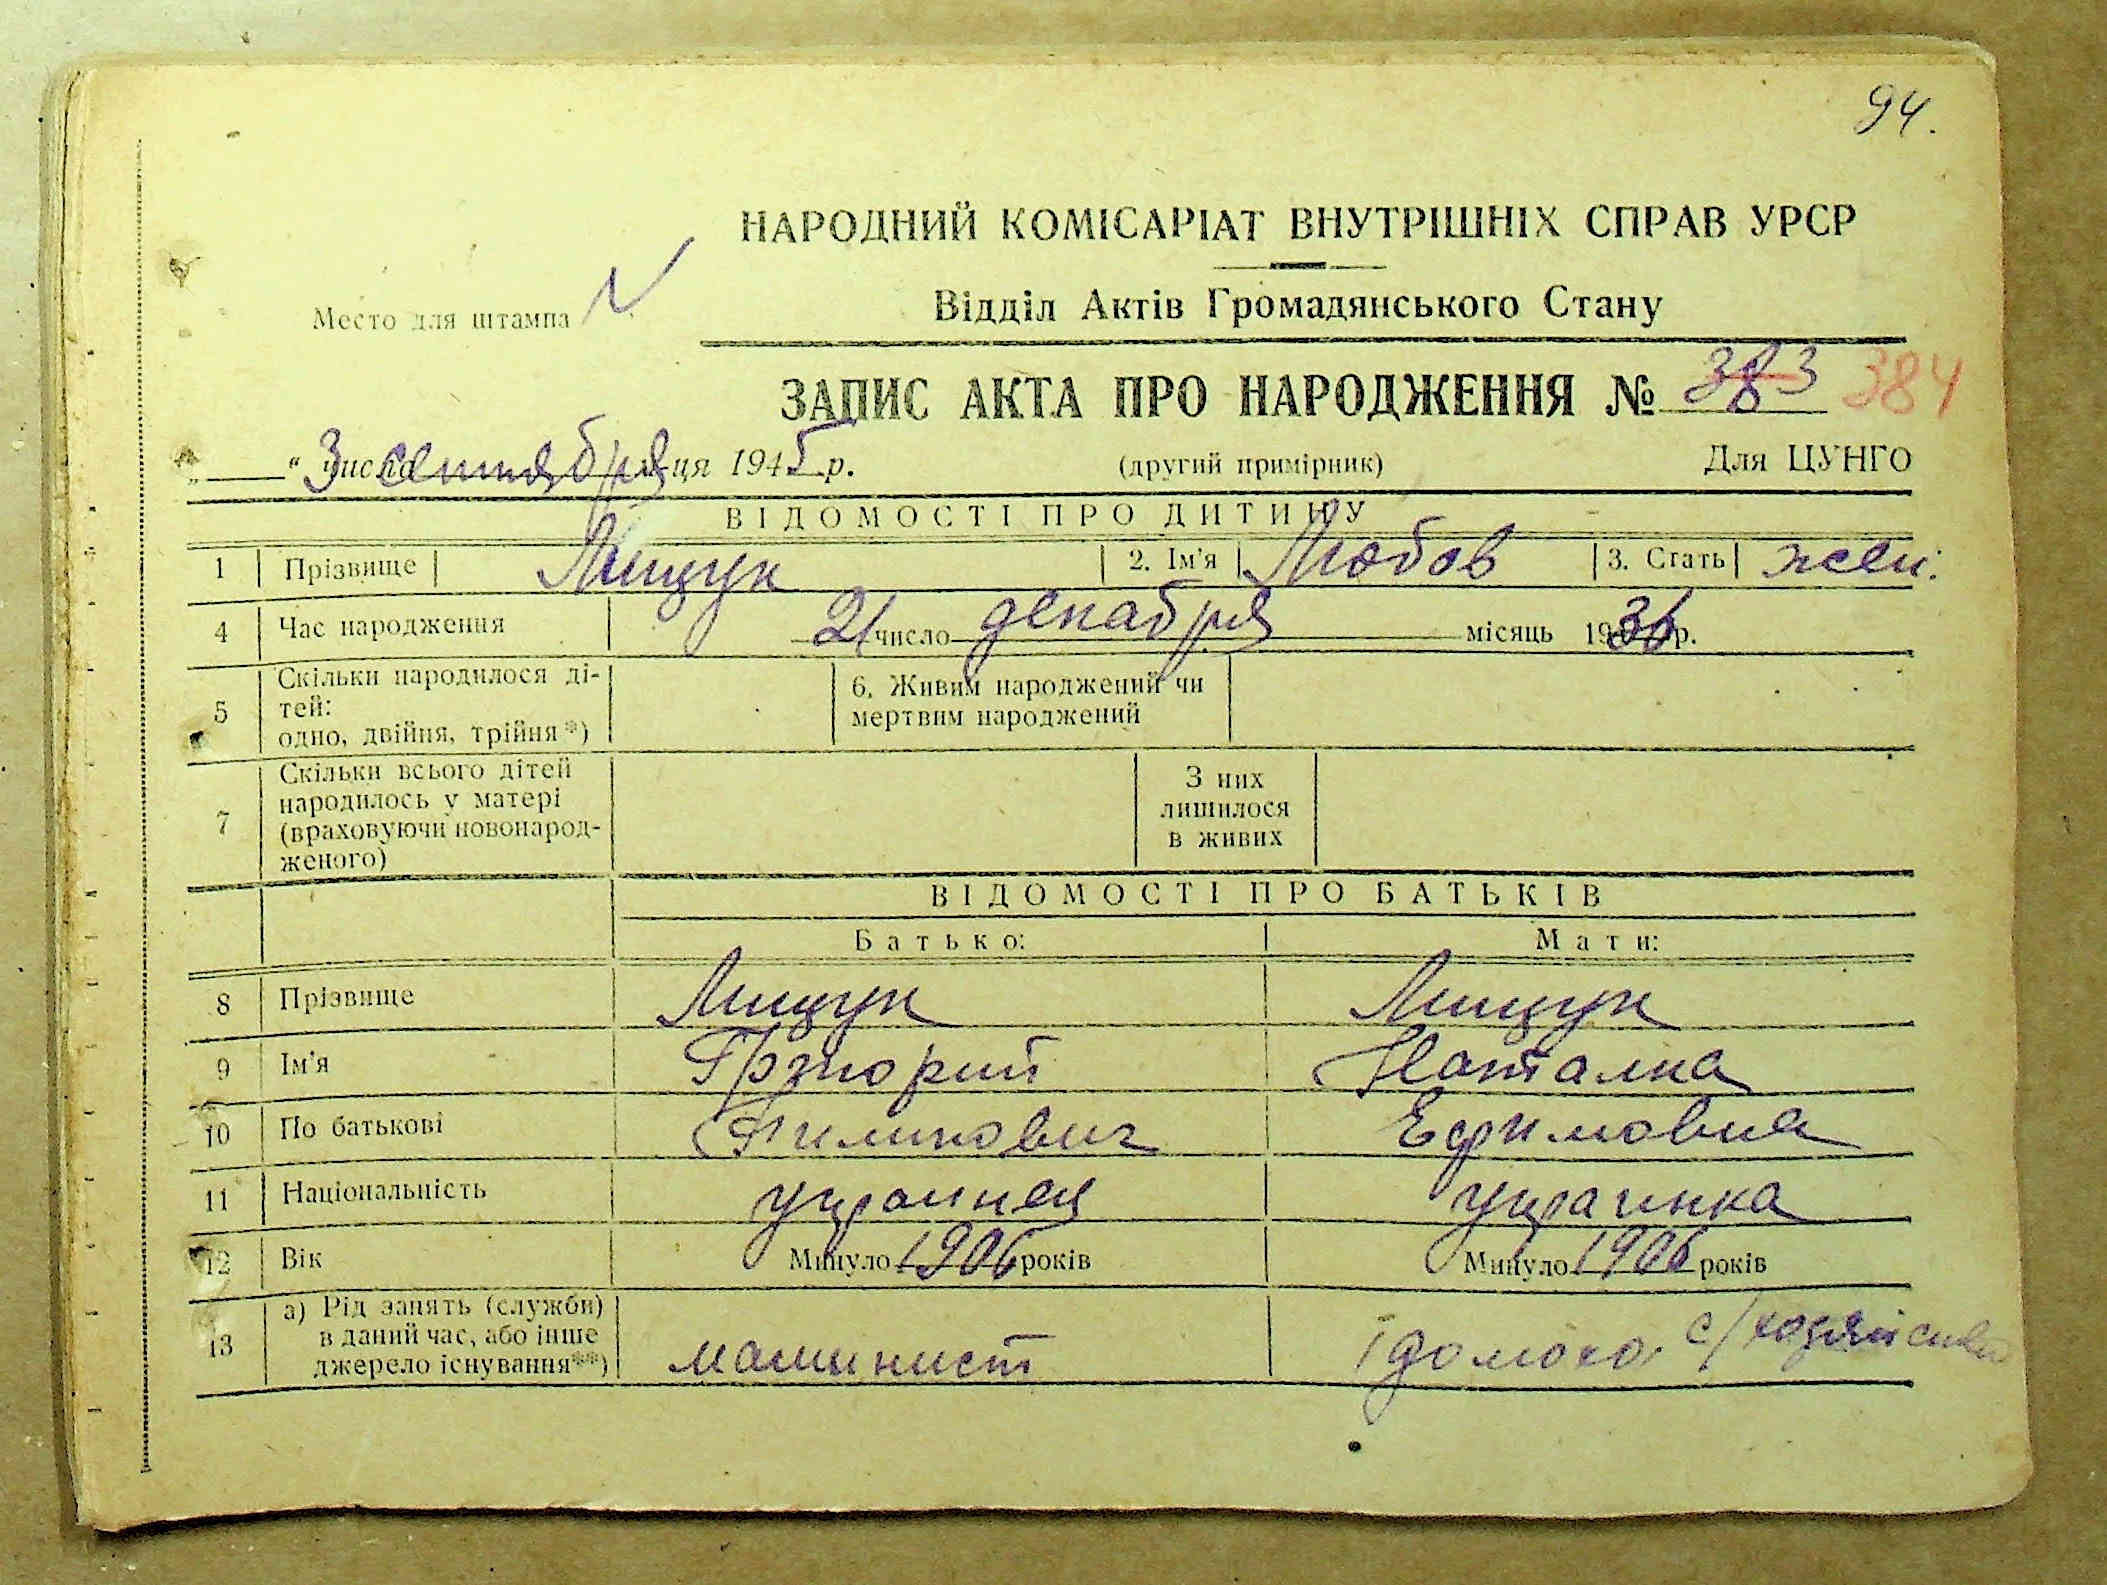 94.
НАРОДНИЙ КОМІСАРІАТ ВНУТРІШНІХ СПРАВ УРСР
Место для штампа
Відділ Актів Громадянського Стану
ЗАПИС АКТА ПРО НАРОДЖЕННЯ № 383 384
„ “ 3 сентября 1945 р. (другий примірник) Для ЦУНГО
ВІДОМОСТІ ПРО ДИТИНУ
1 Прізвище Лищук 2. Ім'я Любов 3. Стать жен.
4 Час народження 21 число декабря місяць 1936 р.
5 Скільки народилося ді-
тей:
одно, двійня, трійня*)
6. Живим народжений чи
мертвим народжений
7 Скільки всього дітей
народилось у матері
(враховуючи новонарод-
женого)
З них
лишилося
в живих
ВІДОМОСТІ ПРО БАТЬКІВ
Батько: Мати:
8 Прізвище Лищук Лищук
9 Ім'я Григорий Наталка
10 По батькові Филипович Ефимовна
11 Національність украинец украинка
12 Вік Минуло 1906 років Минуло 1906 років
13 а) Рід занять (служби)
в даний час, або інше
джерело існування**)
машинист домохоз.